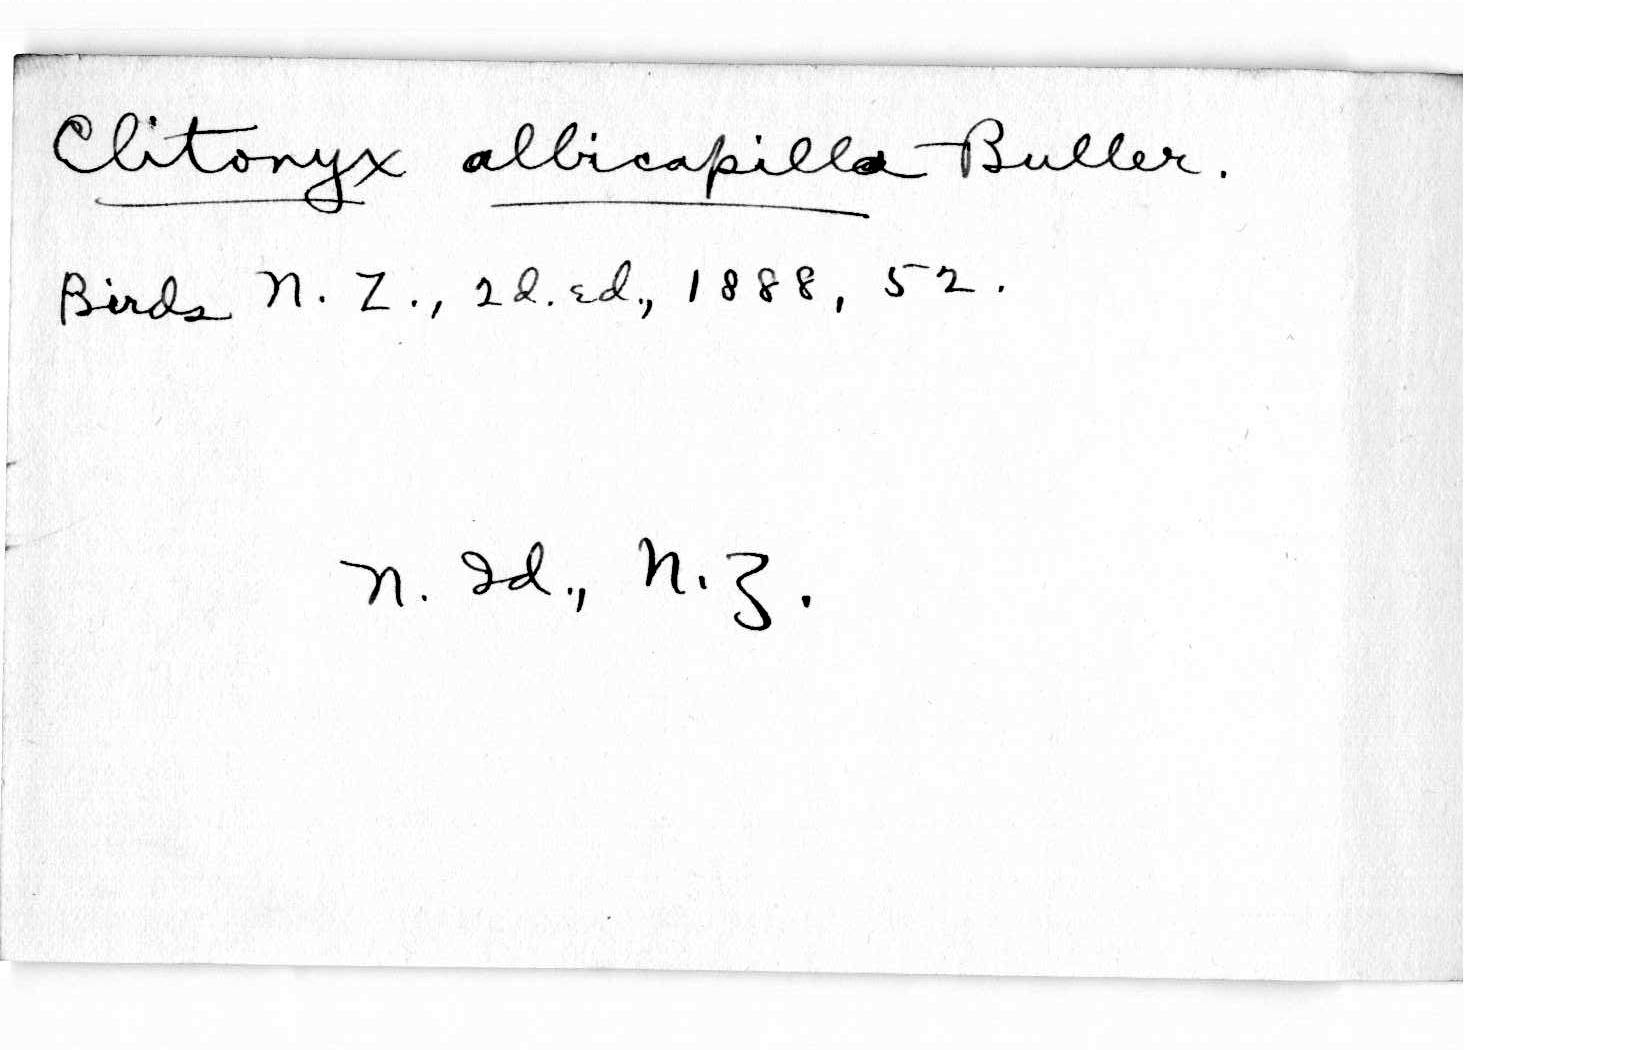 Clitonyx albicapilla Buller.
Birds N. Z., 2d. ed., 1888, 52.
N. Id., N. Z.